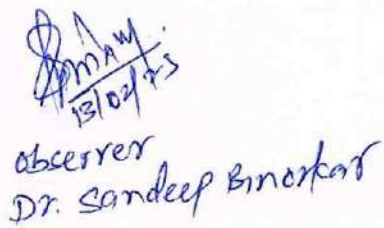 13/02/23
observer
Dr. Sandeep Binorkar